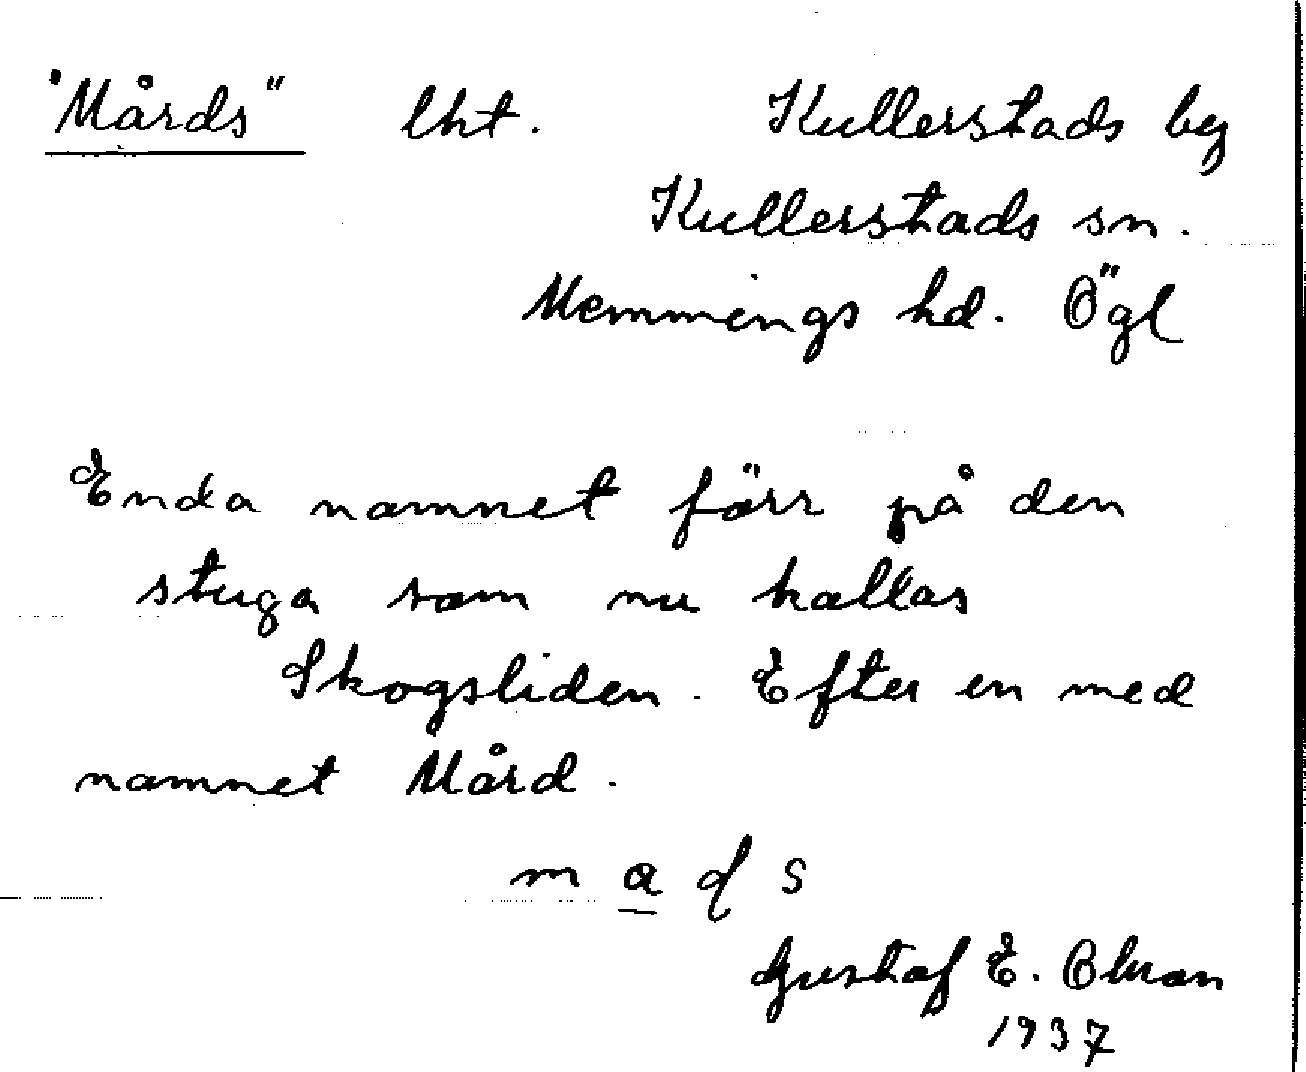 "Mårds" lht. Kullerstads by
Kullerstads sn.
Memmings hd. Ögl
Enda namnet förr på den
stuga som nu kallas
Skogsliden. Efter en med
namnet Mård.
m a ɖ s
Gustaf E. Olson
1937